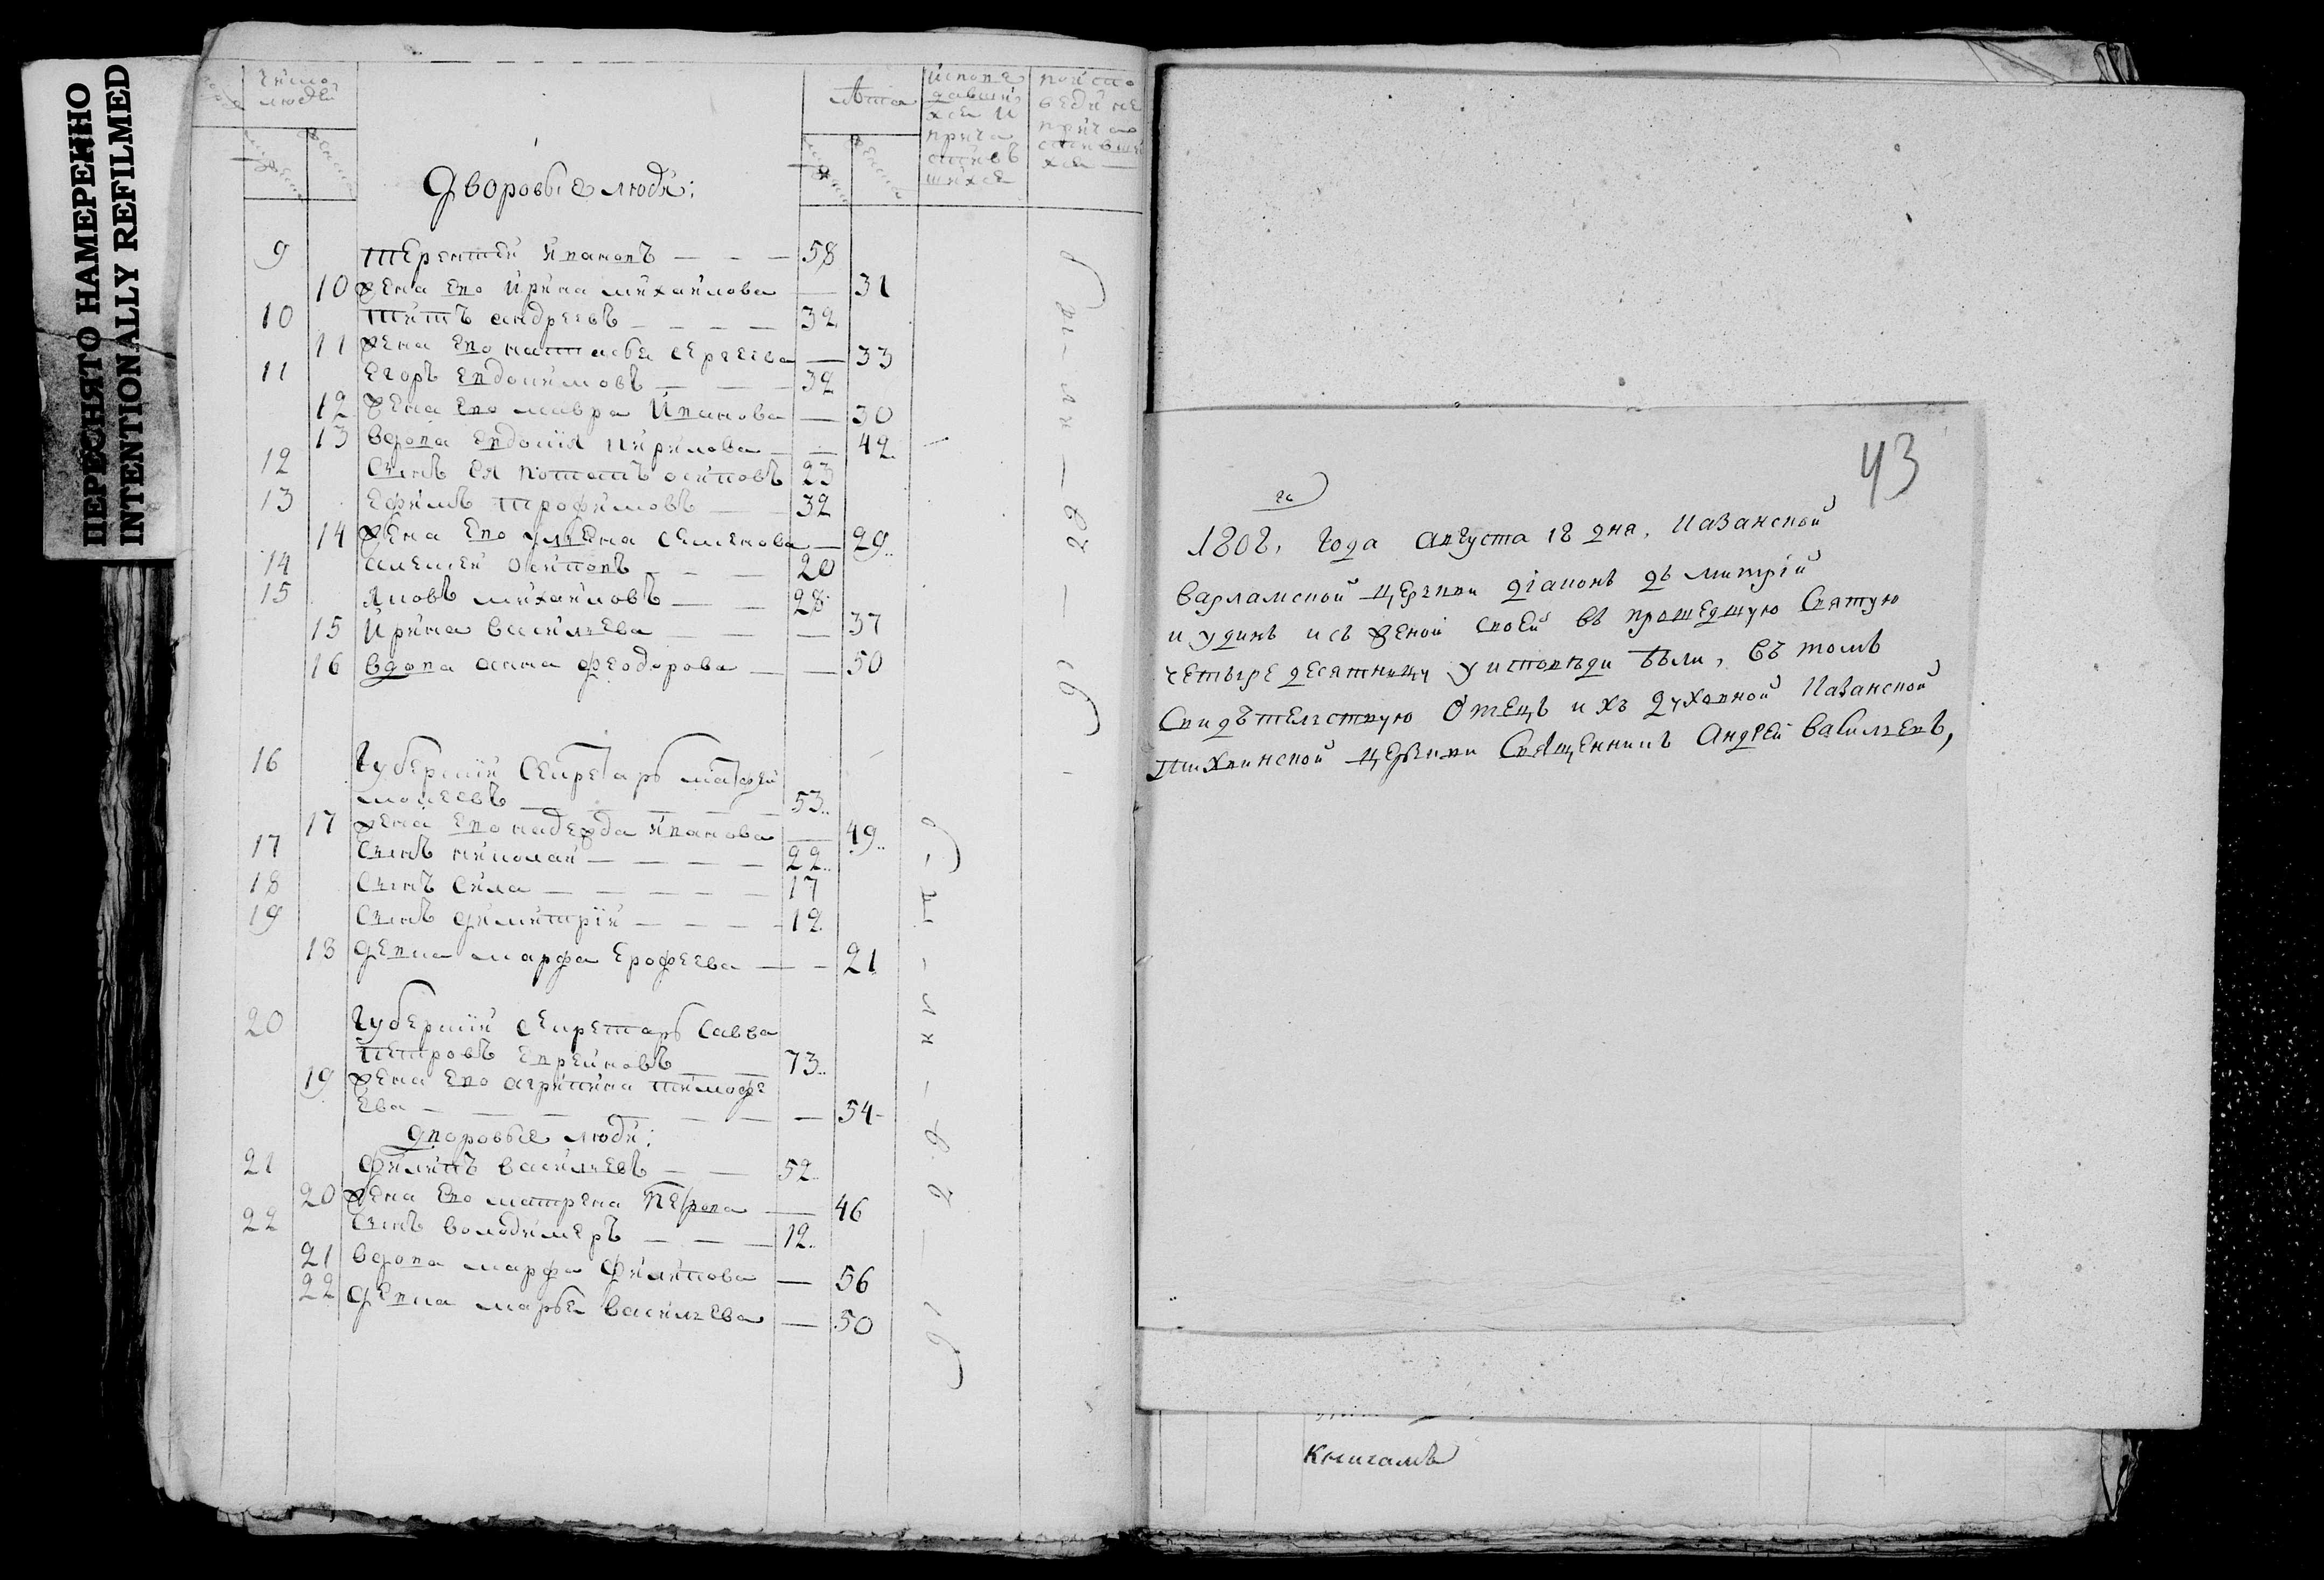 ПЕРЕСНЯТО НАМЕРЕННО
INTENTIONALLY REFILMED
Число людей
Лѣта
исповѣдавшихся и причастившихся
Дворовые люди:
9 Терентей Ивановъ — — — 58
10 жена его Ирина михаилова — 31
10 Титъ андреевъ — — — — 32
11 жена его настасья сергеева — 33
11 Егоръ евдокимовъ — — — 32
12 жена его мавра Иванова — 30
13 вдова евдокия кирилова — — 42
12 Сынъ ея потапъ осиповъ 23
13 ефимъ трофимовъ — — 32
14 жена его ульяна семенова — 29
14 алексей Осиповъ — — — 20
15 Яковъ михаиловъ — — — 28
15 Ирина васильева — — — 37
16 вдова анна феодорова — — 50
были — 28 — 16
16 Губернии Секретарь матфей
моисеевъ — — — — 53
17 жена его надежда иванова — 49
17 Сынъ николай — — — — 22
18 Сынъ Сила — — — — — 17
19 Сынъ димитрий — — — — 12
18 девка марфа Ерофеева — — 21
20 Губернии секретарь Савва
петровъ евреиновъ — — 73
19 жена его агрипина тимофе
ева — — — — — — 54
дворовые люди:
21 филипъ васильевъ — — 52
20 жена его матрена петрова — 46
22 Сынъ володимеръ — — — 12
21 вдова марфа филипова — 56
22 девка марья васильева — 50
43
го
1808, года августа 18 дня, Казанской
варламской церкви дїаконъ дъ митрїй
и удинъ исъ женой своей въ прошедшую Святую
четыре десятницу у исповѣди были, въ томъ
Свидѣтельствую Отецъ ихъ духовной Казанской
тихвинской церкви Священникъ Андрей васильевъ,
книгамъ